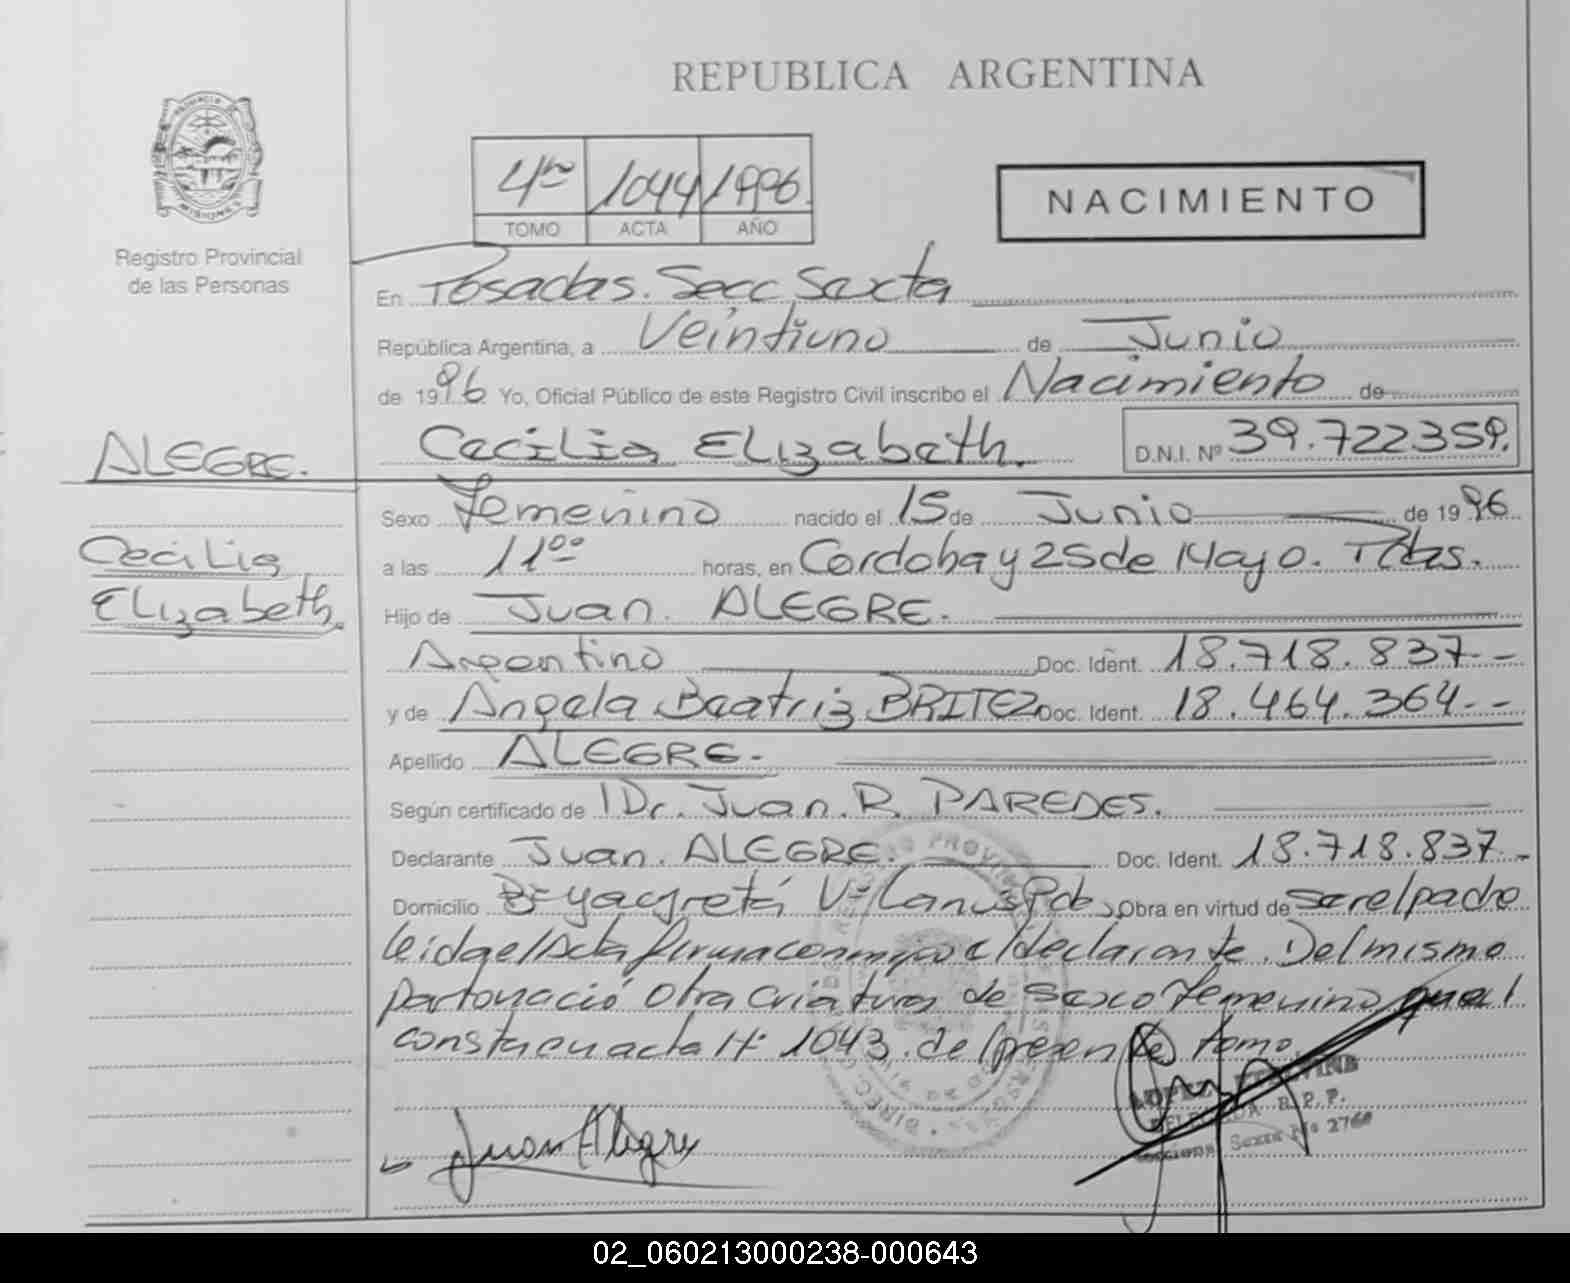 REPUBLICA ARGENTINA
PROVINCIA
MISIONES
Registro Provincial
de las Personas
4to 1044 1996.
TOMO ACTA AÑO
NACIMIENTO
En Posadas. Secc Sexta
República Argentina, a Veintiuno de Junio
de 1996 Yo, Oficial Público de este Registro Civil inscribo el Nacimiento de
ALEGRE.
Cecilia ELizabeth. D.N.I. Nº 39.722359.
Cecilia
ELizabeth.
Sexo Femenino nacido el 15 de Junio de 1996
a las 11ºº horas, en Cordoba y 25 de Mayo. Pdas.
Hijo de Juan. ALEGRE.
Argentino Doc. Ident. 18.718.837--
y de Angela Beatriz BRITEZ Doc. Ident. 18.464.364--
Apellido ALEGRE.-
Según certificado de Dr. Juan. R. PAREDES.
Declarante Juan. ALEGRE. Doc. Ident. 18.718.837.-
Domicilio Bº yacyretá Vª Lanús Pdas, Obra en virtud de ser el padre
leida el Acta firma conmigo el declarante. Del mismo
parto nació otra criatura de sexo femenino que
consta en acta Nº 1043. del presente tomo
Juan Alegre
LOPEZ
DELEGADA R.P.P.
Sexta Nº
02_060213000238-000643